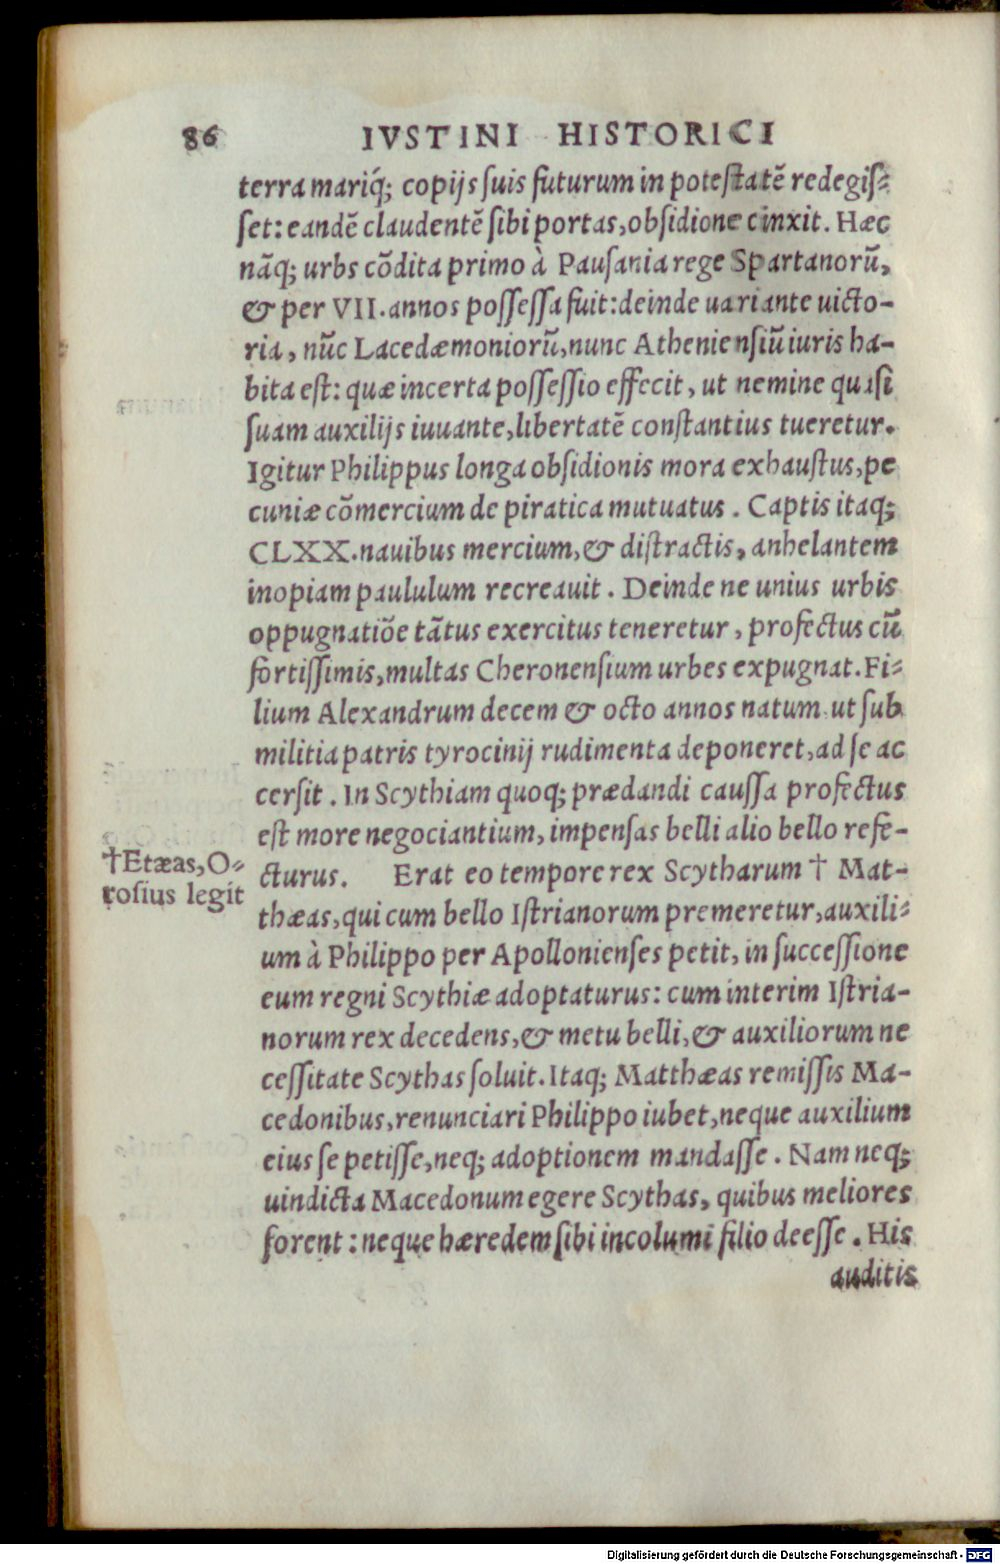 86 IVSTINI HISTORICI
terra mariq́; copijs suis futurum in potestatē redegiſ⸗
ſet: eandē claudentē ſibi portas, obſidione cinxit. Hæc
nāq; urbs cōdita primo à Pauſania rege Spartanorū,
& per VII. annos poſſeſſa fuit: deinde uariante uicto-
ria, nūc Lacedæmoniorū, nunc Athenienſiū iuris ha-
bita eſt: quæ incerta poſſeſſio effecit, ut nemine quaſi
ſuam auxilijs iuuante, libertatē conſtantius tueretur.
Igitur Philippus longa obſidionis mora exhauſtus, pe
cuniæ cōmercium de piratica mutuatus. Captis itaq;
CLXX. nauibus mercium, & diſtractis, anhelantem
inopiam paululum recreauit. Deinde ne unius urbis
oppugnatiōe tātus exercitus teneretur, profectus cū
fortiſſimis, multas Cheronenſium urbes expugnat. Fi⸗
lium Alexandrum decem & octo annos natum ut ſub
militia patris tyrocinij rudimenta deponeret, ad ſe ac
cerſit. In Scythiam quoq; prædandi cauſſa profectus
eſt more negociantium, impenſas belli alio bello refe-
cturus. Erat eo tempore rex Scytharum † Mat-
†Etæas, O⸗
roſius legit
thæas, qui cum bello Iſtrianorum premeretur, auxili⸗
um à Philippo per Apollonienſes petit, in ſucceſſione
eum regni Scythiæ adoptaturus: cum interim Iſtria-
norum rex decedens, & metu belli, & auxiliorum ne
ceſſitate Scythas ſoluit. Itaq; Matthæas remiſſis Ma-
cedonibus, renunciari Philippo iubet, neque auxilium
eius ſe petiſſe, neq; adoptionem mandaſſe. Nam neq;
uindicta Macedonum egere Scythas, quibus meliores
forent: neque hæredem ſibi incolumi filio deeſſe. His
auditis
Digitalisierung gefördert durch die Deutsche Forschungsgemeinschaft - DFG